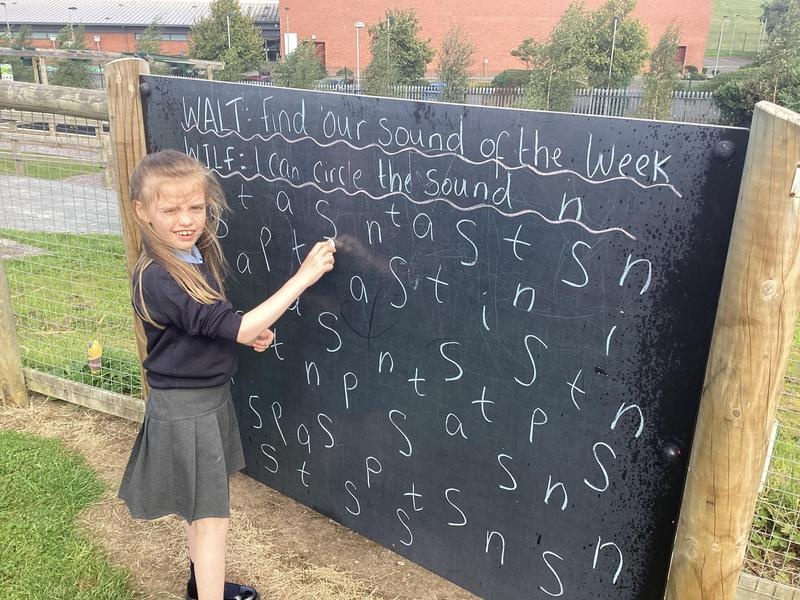 WALT: Find our sound of the Week
WILF: I can circle the sound
t a S n t a S t S n
a p t a S t i n i
t S n S S t n
n p t t p
S p a S S a S n S
S t p t S n
S S S n